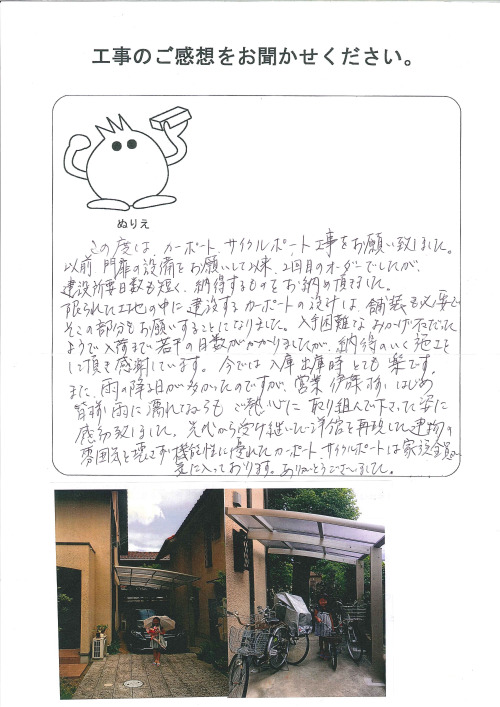 工事のご感想をお聞かせください。
ぬりえ
この度は、カーポート、サイクルポート工事をお願い致しました。
以前 門扉の設備をお願いして以来、2回目のオーダーでしたが、
建設所要日数も短く、納得するものをお納め頂きました。
限られた土地の中に建設するカーポートの設計は、舗装も必要で
そこの部分もお願いすることになりました。入手困難な
ようで入荷まで若干の日数がかかりましたが、納得のいく施工を
して頂き感謝しています。今では入庫出庫時とても楽です。
また、雨の降る日が多かったのですが、営業 伊藤様はじめ
皆様雨に濡れながらも ご熱心に取り組んで下さった姿に
感動致しました。先代から受け継いだ洋館を再現した建物の
雰囲気を壊さず機能性に優れたカーポート サイクルポートは家族全員
気に入っております。ありがとうございました。